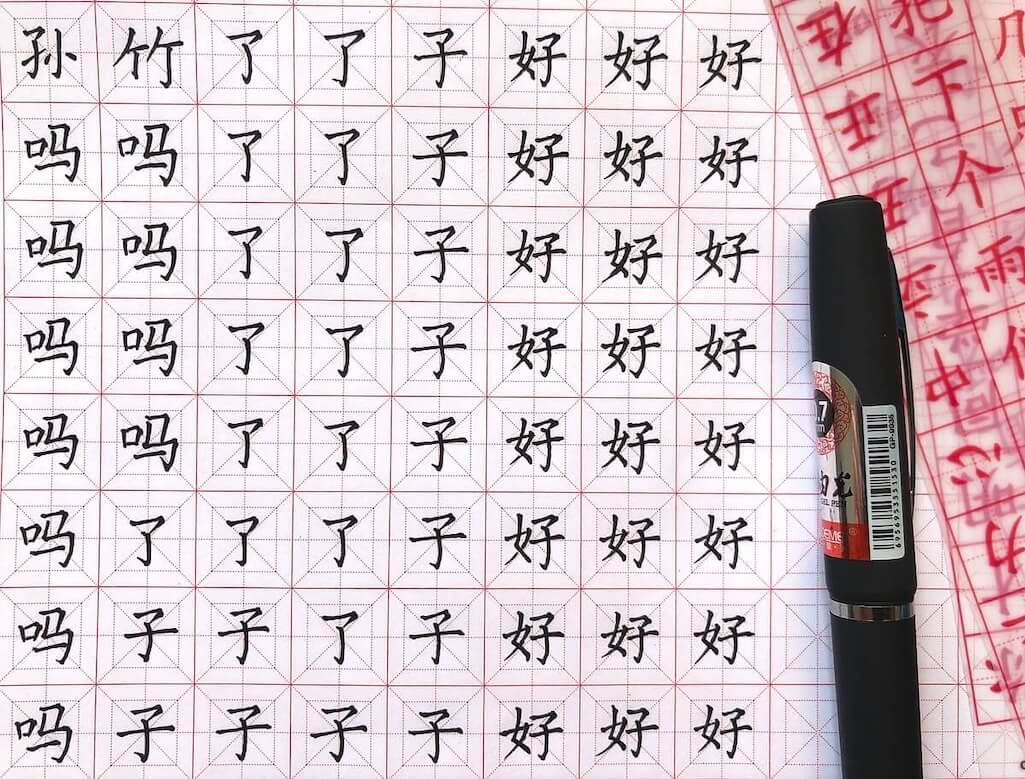 孙竹了了子好好好
吗吗了了子好好好
吗吗了了子好好好
吗吗了了子好好好
吗吗了了子好好好
吗了了了子好好好
吗子子了子好好好
吗子子子子好好好
下
个
雨
中
GP-9936
6956953531530
GEL PEN